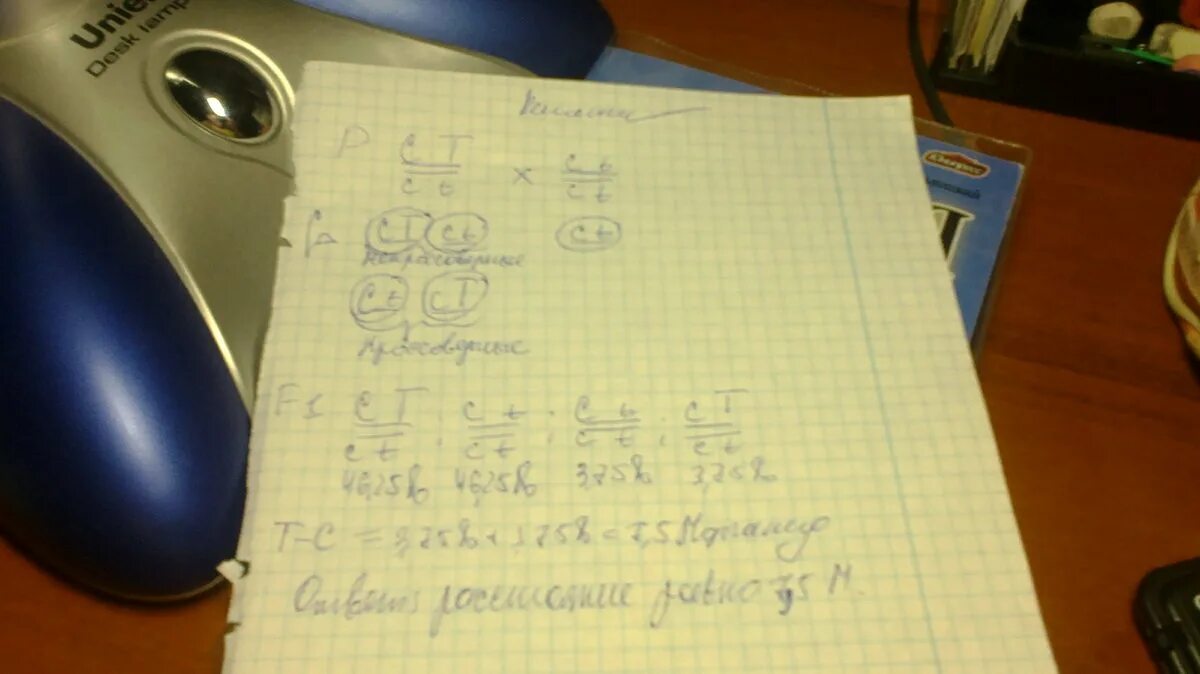 Unie
Desk lamp
P C T x c t
c t c t
G CT ct ct
Некроссоверные
Ct cT
Кроссоверные
F1 C T ; c t ; C t ; c T
c t c t c t c t
46,25% 46,25% 3,75% 3,75%
T-C = 3,75% + 3,75% = 7,5 Морганид
Ответ: расстояние равно 7,5 М.